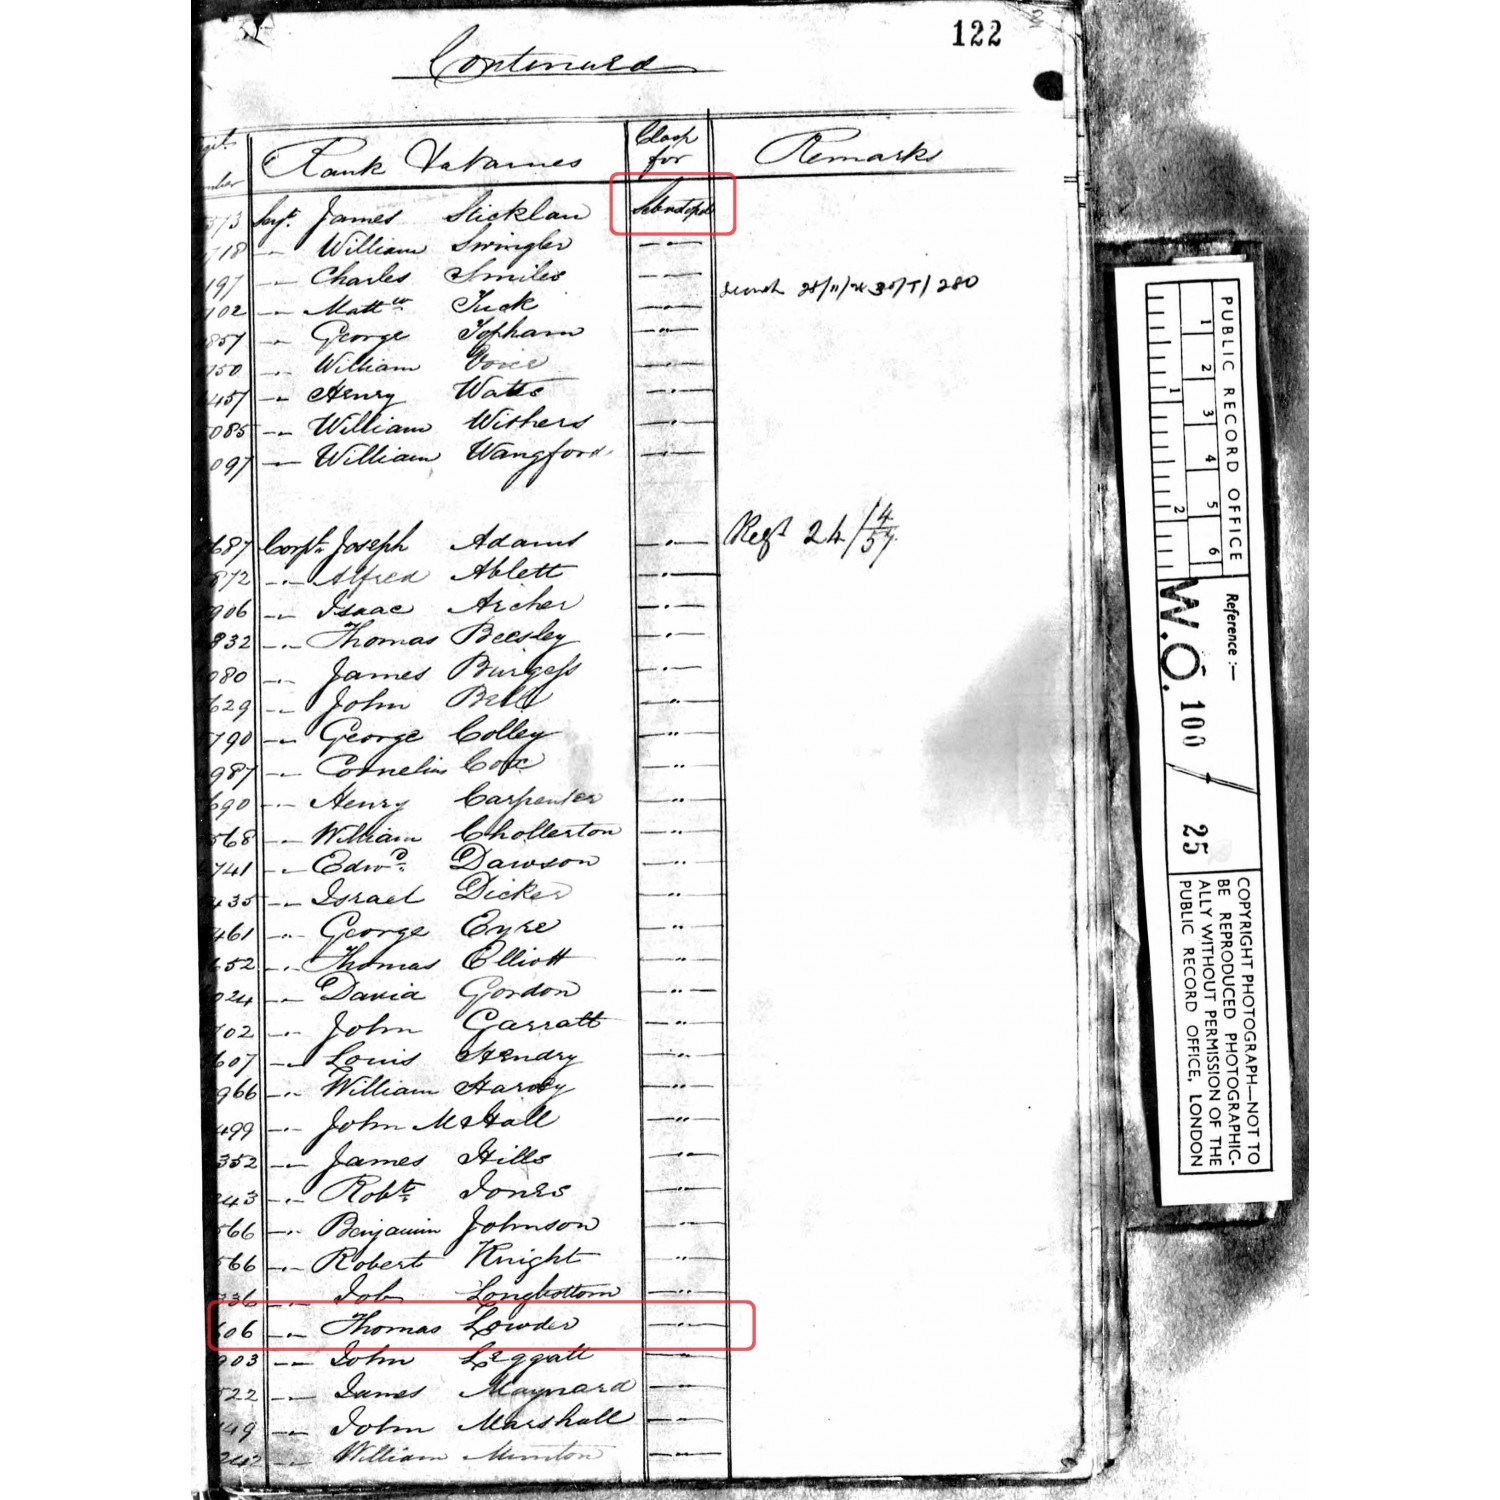 122
Continued
Rank & Names Clasp for Remarks
573 Sergt. James Sticklan Sebastopol
718 —„— William Swingler —„—
197 —„— Charles Smiles —„—
102 —„— Mattw Tuck —„— 280
857 —„— George Topham —„—
150 —„— William Voice —„—
457 —„— Henry Watts —„—
085 —„— William Withers —„—
097 —„— William Wangford —„—
687 Corpl. Joseph Adams —„— Regt 24/14/57
872 —„— Alfred Ablett —„—
906 —„— Isaac Archer —„—
832 —„— Thomas Beesley —„—
080 —„— James Burgess —„—
629 —„— John Bell —„—
790 —„— George Colley —„—
987 —„— Cornelius Cox —„—
690 —„— Henry Carpenter —„—
568 —„— William Chollerton —„—
741 —„— Edwd. Dawson —„—
435 —„— Israel Dicker —„—
461 —„— George Eyre —„—
652 —„— Thomas Elliott —„—
024 —„— David Gordon —„—
702 —„— John Garratt —„—
607 —„— Louis Hendry —„—
966 —„— William Hardy —„—
499 —„— John Hall —„—
352 —„— James Hills —„—
243 —„— Robt. Jones —„—
566 —„— Benjamin Johnson —„—
566 —„— Robert Knight —„—
336 —„— Job Longbottom —„—
606 —„— Thomas Lowder —„—
903 —„— John Leggatt —„—
522 —„— James Maynard —„—
149 —„— John Marshall —„—
242 —„— William Minton —„—
PUBLIC RECORD OFFICE
1 2 3 4 5 6
1 2
Reference:—
W.O. 100 / 25
COPYRIGHT PHOTOGRAPH—NOT TO
BE REPRODUCED PHOTOGRAPHIC-
ALLY WITHOUT PERMISSION OF THE
PUBLIC RECORD OFFICE, LONDON